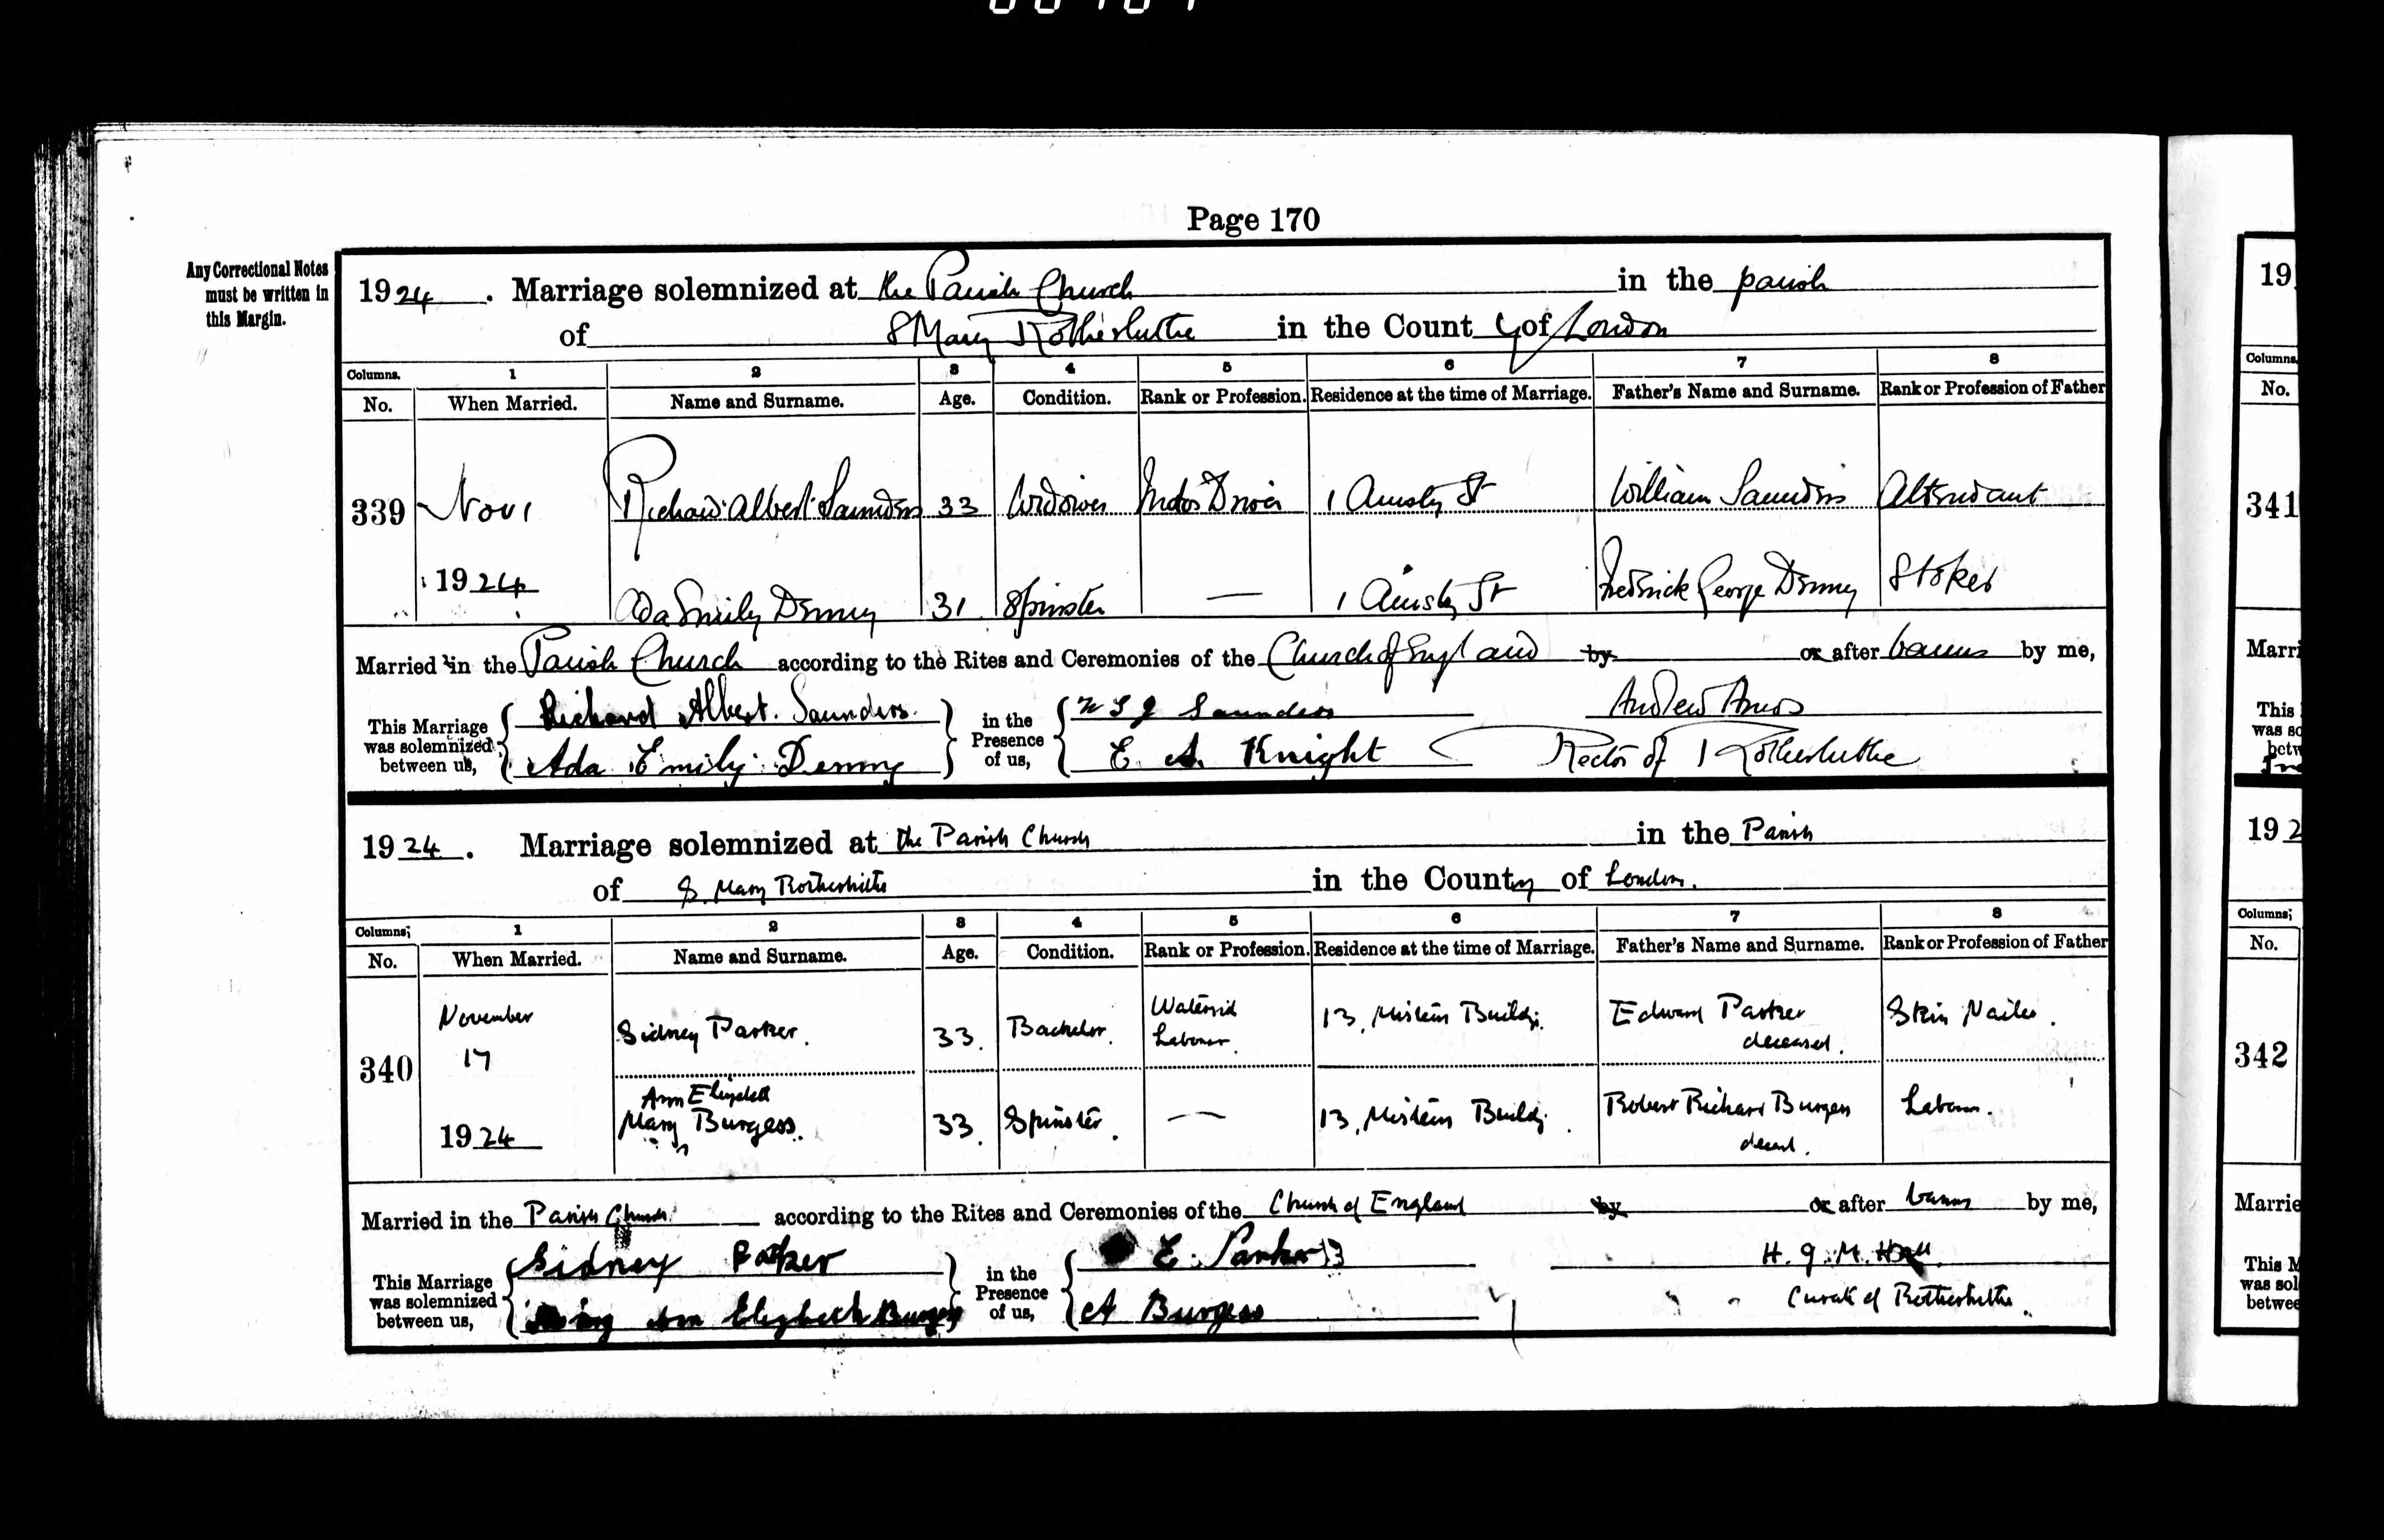 Page 170
Any Correctional Notes
must be written in
this Margin.
1924. Marriage solemnized at the Parish Church in the parish
of S Mary Rotherhithe in the County of London
Columns. 1 2 3 4 5 6 7 8
No. When Married. Name and Surname. Age. Condition. Rank or Profession. Residence at the time of Marriage. Father's Name and Surname. Rank or Profession of Father
339 Nov 1 Richard Albert Saunders 33 Widower Motor Driver 1 Ainsty St William Saunders Attendant
1924 Ada Emily Denny 31 Spinster — 1 Ainsty St Frederick George Denny Stoker
Married in the Parish Church according to the Rites and Ceremonies of the Church of England by or after banns by me,
This Marriage
was solemnized
between us,
Richard Albert. Saunders.
Ada Emily Denny
in the
Presence
of us,
Saunders
E. A. Knight
Andrew Amos
Rector of Rotherhithe
1924. Marriage solemnized at the Parish Church in the Parish
of S. Mary Rotherhithe in the County of London.
Columns; 1 2 3 4 5 6 7 8
No. When Married. Name and Surname. Age. Condition. Rank or Profession. Residence at the time of Marriage. Father's Name and Surname. Rank or Profession of Father
340 November 17 Sidney Parker. 33. Bachelor. Waterside Labourer. 13, Buildgs. Edward Parker deceased. Skin Nailer.
1924 Mary Ann Elizabeth Burgess. 33. Spinster. — 13, Buildg. Robert Richard Burgess deceased. Labourer.
Married in the Parish Church according to the Rites and Ceremonies of the Church of England by or after banns by me,
This Marriage
was solemnized
between us,
Sidney Parker
Ann Elizabeth Burgess
in the
Presence
of us,
E. Parker
A Burgess
H. G. M. Hall
Curate of Rotherhithe.
19
Columns
No.
341
Marri
This
was so
betw
192
Columns;
No.
342
Marrie
This M
was sol
betwee